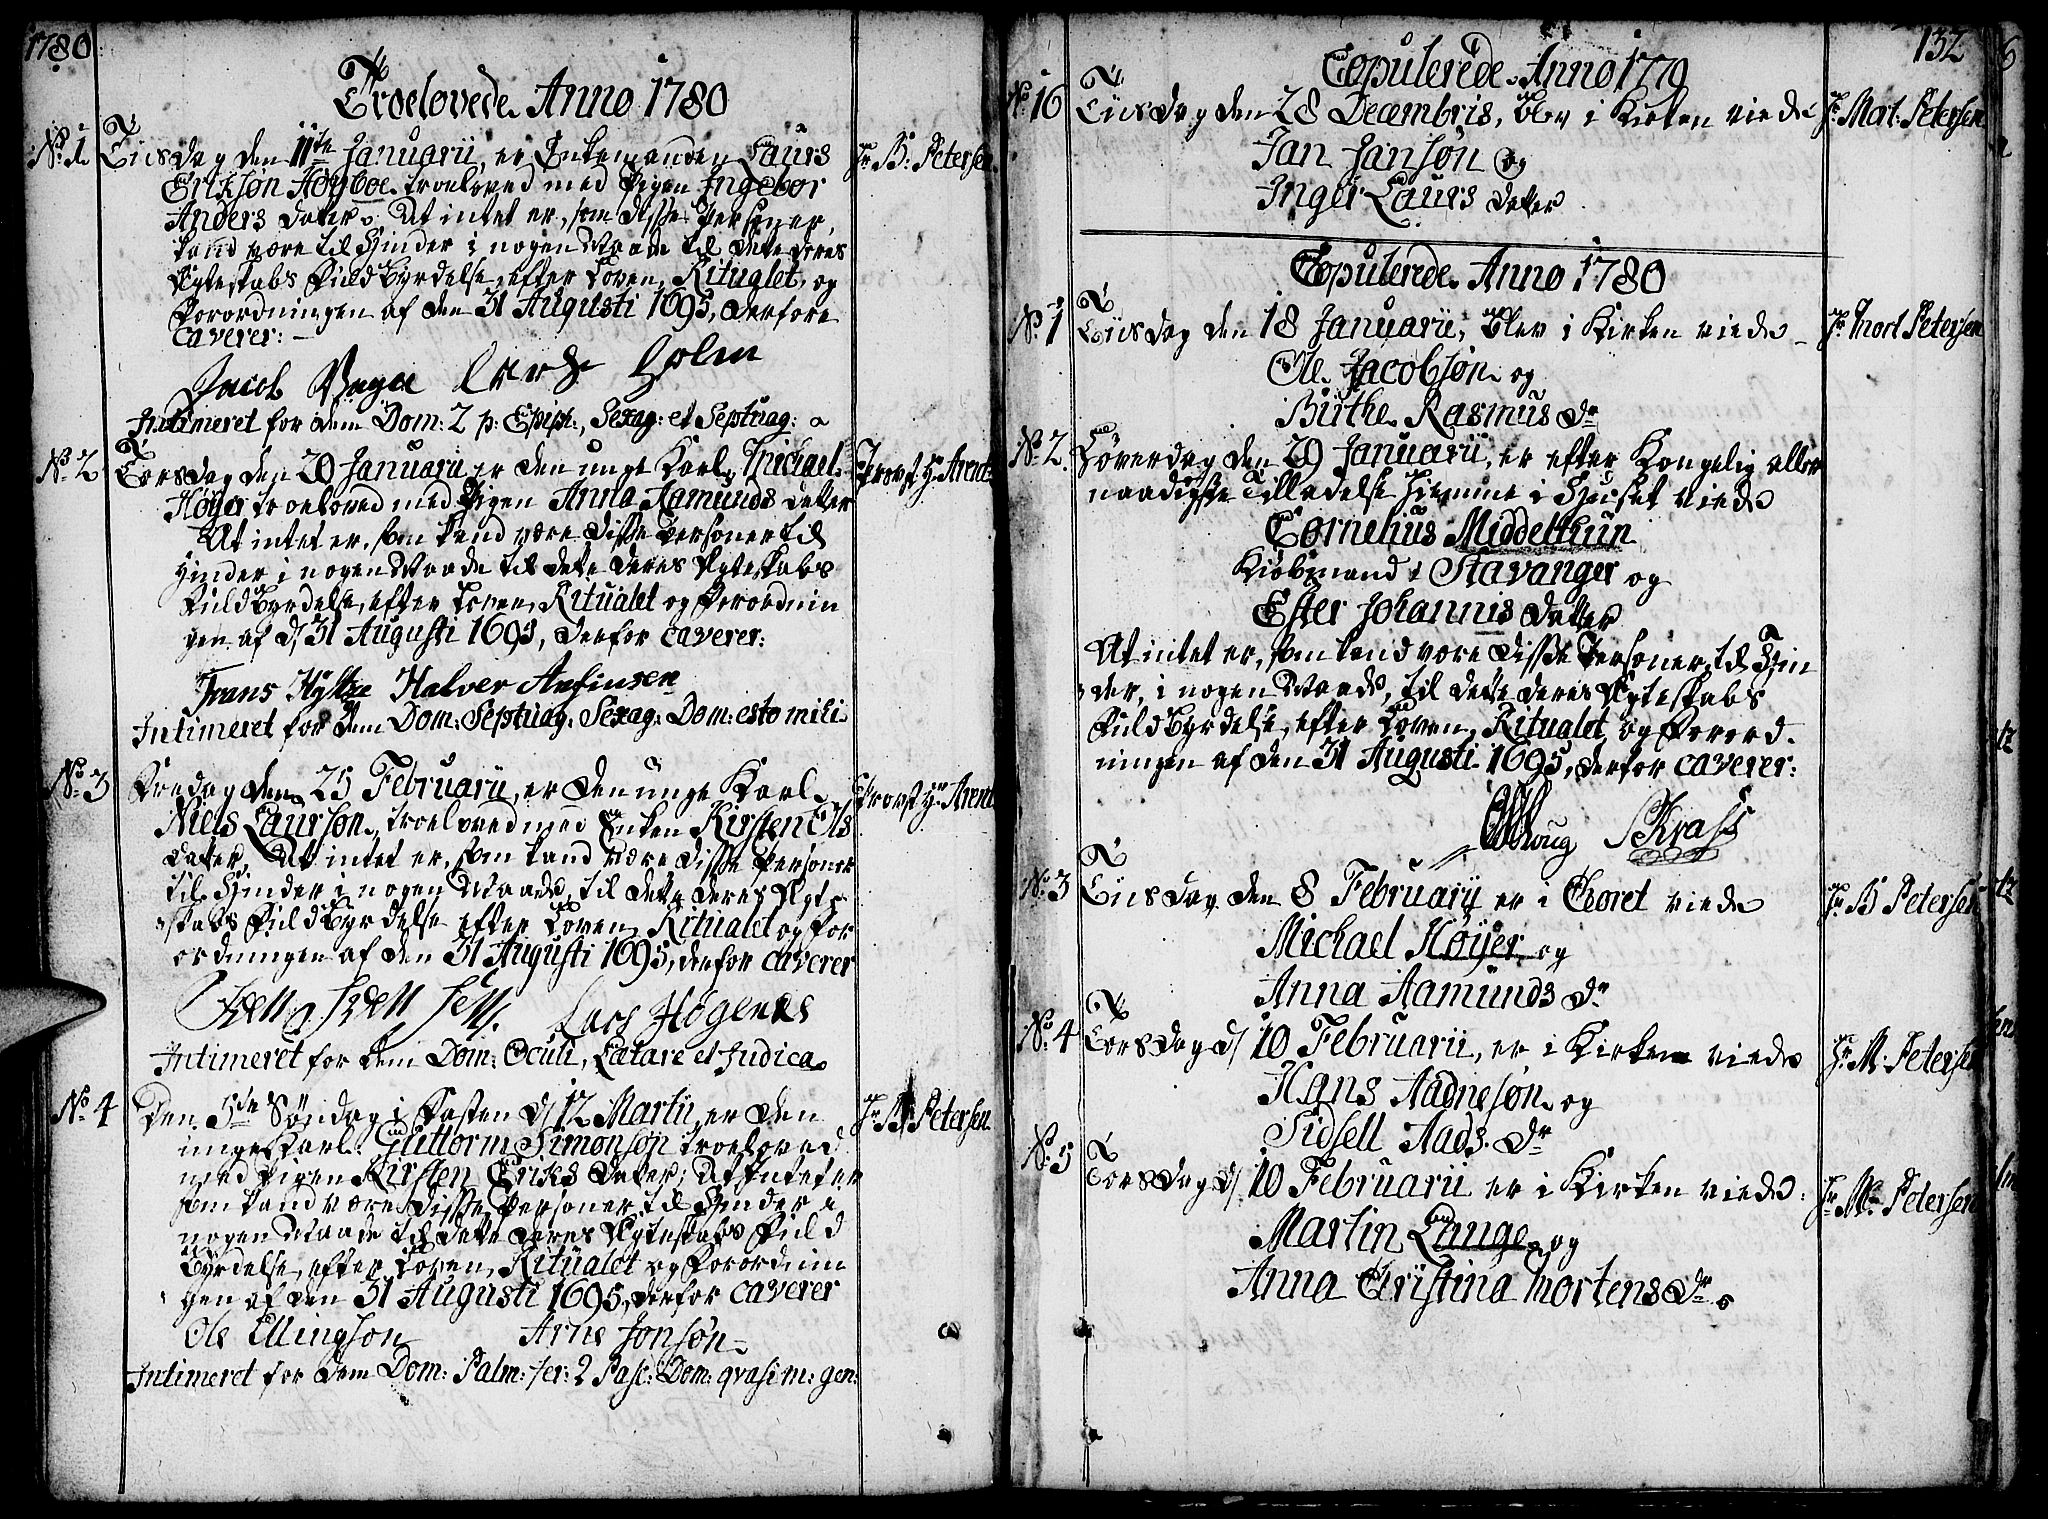 1780
Troelovede Anno 1780
No. 1
Tiisdag den 11te Januarii, er Enkemanden Laurs
Hr. B: Petersen
Erikson Høyboe troeloved med Pigen Ingebor
Anders Datter, At intet er, som disse Persohner,
kand være til Hinder i nogen Maade til dette deres
Ægteskabs Fuldbyrdelse efter Loven, Ritualet, og
Forordningen af den 31 Augusti 1695, derfore
caverer:
Jacob Holm
Intimeret for dem Dom: 2 p: Epiph:, Sexag: et Septuag:
No. 2
Torsdag den 20 Januarii er den unge Karl Michael
Provst Hr. Arentz
Høyer troeloved med Pigen Anna Aamunds Datter
At intet er, som kand være disse Personer til
Hinder i nogen Maade til dette deres Ægteskabs
Fuldbyrdelse, efter Loven, Ritualet og Forordnin
gen af d/ 31 Augusti 1695, derfor caverer:
Frans Hyltze Halver Anfinsen
Intimeret for dem Dom: Septuag: Sexag: Dom: esto mihi
No. 3
Fredag den 25 Februarii, er den unge Karl
Provst Hr. Arentz
Niels Laurson, troeloved med Enken Kirsten Ols
Datter, At intet er, som kand være disse Personer
til Hinder i nogen Maade, til dette deres Ægte
skabs Fuldbyrdelse efter Loven, Ritualet og For
ordningen af den 31 Augusti 1695, derfor caverer
Lars Høgenes
Intimeret for dem Dom: Oculi, Lætare et Judica
No. 4
Den 5te Søndag i Fasten d/ 12 Martii er den
Hr. M Petersen
unge Karl Guttorm Simonson troeloved
med Pigen Kirsten Eriks Datter; At Intet er
som kand være disse Personer til Hinder i
nogen Maade til dette deres Ægteskabs Fuld
Byrdelse, efter Loven, Ritualet og Forordnin
gen af den 31 Augusti 1695, derfor caverer
Ole Ellingson Arne Jonsøn
Intimeret for dem Dom: Palm: fer: 2 Pasc: Dom: qvasim: gen:
132
Copulerede Anno 1779
No. 16
Tiisdag den 28 Decembris, blev i Kirken viede
Hr. Mort: Petersen
Jan Jansøn og
Inger Laurs Datter
Copulerede Anno 1780
No. 1
Tiisdag den 18 Januarii, blev i Kirken viede
Hr. Mort Petersen
Ole Jacobsøn og
Birthe Rasmus Dr
No. 2.
Løverdag den 29 Januarii, er efter Kongelig aller
naadigste Tilladelse hiemme i Huuset viede
Cornelius Middelthun
Kiøbmand i Stavanger og
Ester Johannis Datter
At intet er, som kand være disse Personer til Hin
der, i nogen Maade, til dette deres Ægteskabs
Fuldbyrdelse, efter Loven, Ritualet, og Forord-
ningen af den 31 Augusti 1695, derfor caverer:
Krass
No. 3
Tiisdag den 8 Februarii er i Choret viede
Hr. B Petersen
Michael Høyer og
Anna Aamunds Dr
No. 4
Torsdag d/ 10 Februarii, er i Kirken viede
Hr. M: Petersen
Hans Aadnesøn og
Sidsell Aads Dr
No. 5
Torsdag d/ 10 Februarii er i Kirken viede:
Hr. M. Petersen
Martin Lange og
Anna Christina Mortens Dr